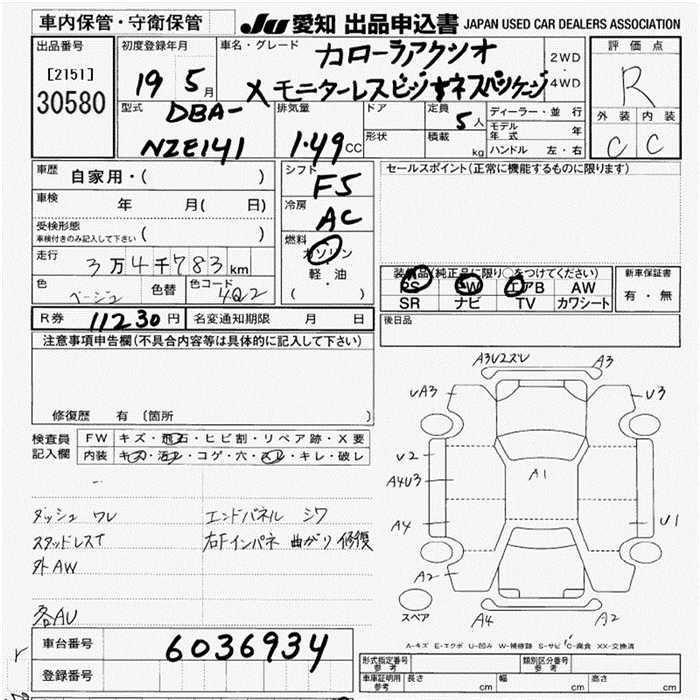 車内保管・守衛保管
JU 愛知 出品申込書 JAPAN USED CAR DEALERS ASSOCIATION
出品番号
[2151]
30580
初度登録年月
19 5月
車名・グレード
カローラアクシオ
X モニターレスビジネスパッケージ
2WD
・
4WD
評価点
R
外装 内装
C C
型式
DBA-
NZE141
排気量
1.49 CC
ドア
形状
定員
5人
積載
kg
ディーラー・並行
モデル年式 年
ハンドル 左・右
車歴
自家用・( )
車検
年 月( 日)
受検形態
車検付きのみ記入して下さい ( )
走行
3万4千783km
色
ベージュ
色替
色コード
4Q2
シフト
F5
冷房
AC
燃料
ガソリン
・
軽・油
( )
セールスポイント(正常に機能するものに限ります)
装備品(純正品に限り○をつけてください)
PS PW エアB AW
SR ナビ TV カワシート
新車保証書
有・無
R券 11230円
名変通知期限 月 日
後日品
注意事項申告欄(不具合内容等は具体的に記入して下さい)
修復歴 有〔箇所 〕
検査員
記入欄
FW キズ・飛石・ヒビ割・リペア跡・X要
内装 キズ・汚レ・コゲ・穴・スレ・キレ・破レ
ダッシュ ワレ
スタッドレスT
外AW
各AU
エンドパネル シワ
右Fインパネ 曲がり 修復
A3U2ズレ
A3
UA3
U3
U2
A4U3
A1
A4
U1
A2
スペア
A4
A2
A-キズ E-エクボ U-凹み W-補修跡 S-サビ C-腐食 XX-交換済
車台番号
6036934
登録番号
型式指定番号
参考
類別区分番号
参考
車庫証明用
参考
長さ cm
幅 cm
高さ cm